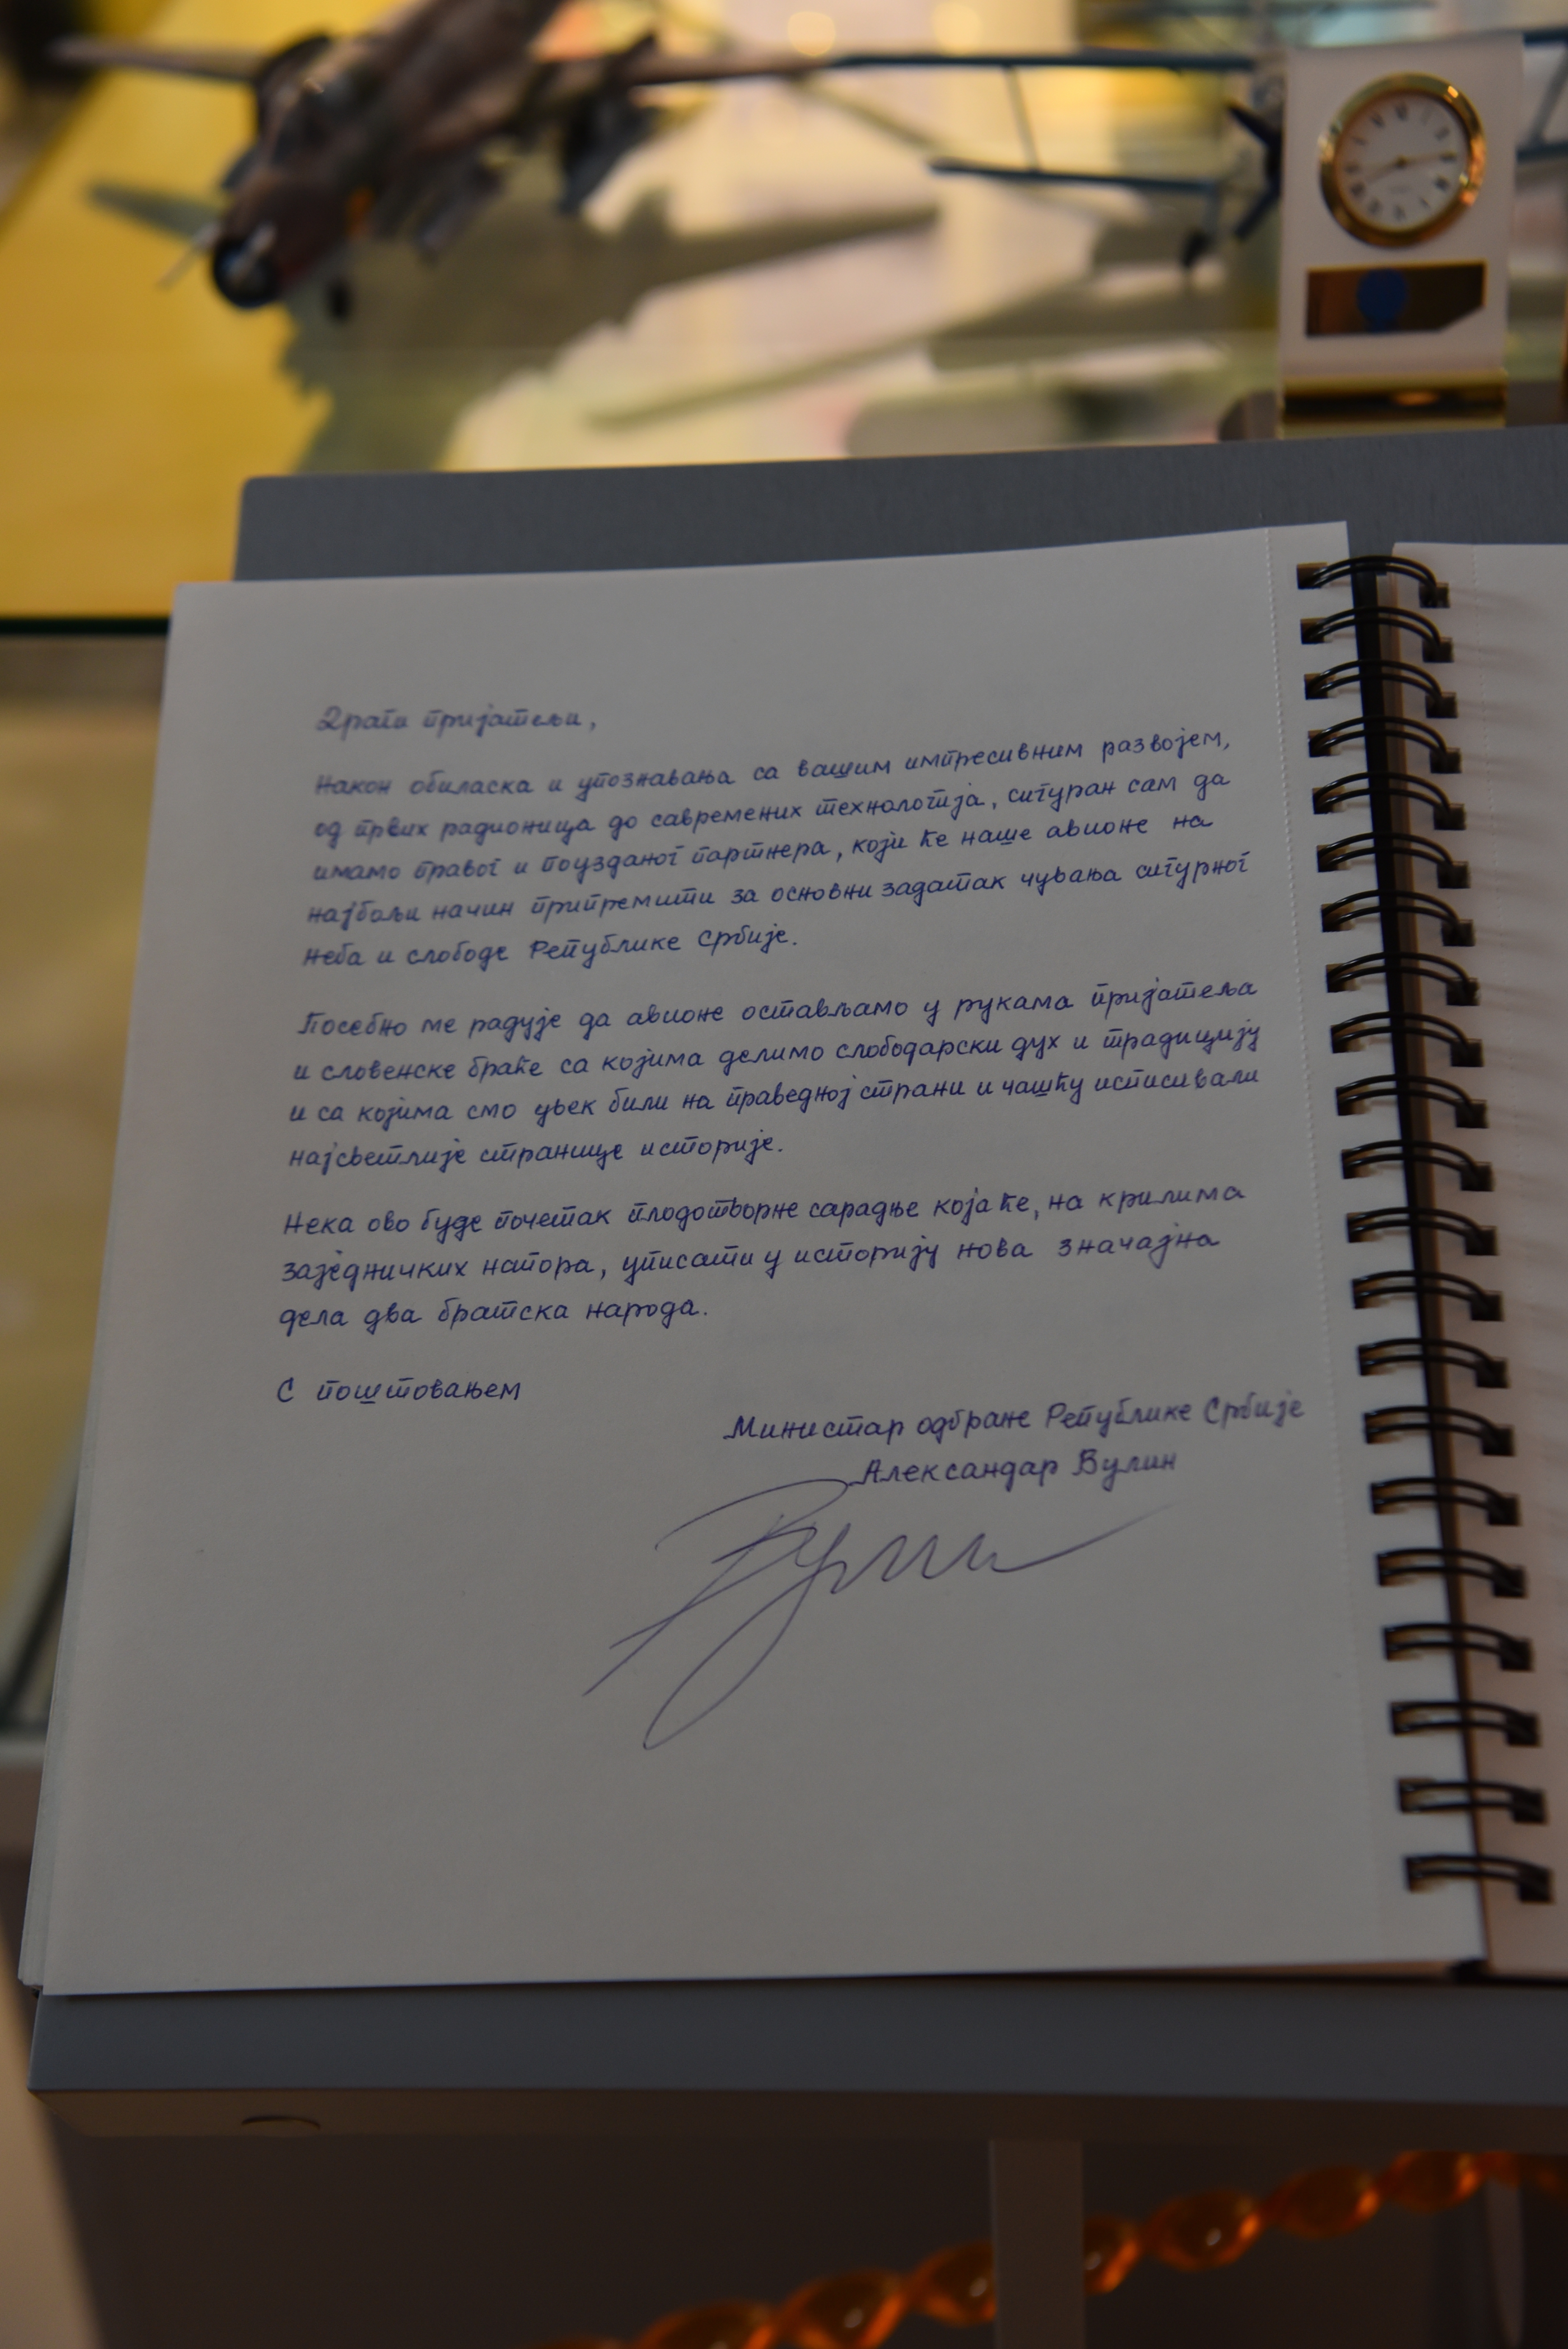 Драги пријатељи,
Након обиласка и упознавања са вашим импресивним развојем,
од првих радионица до савремених технологија, сигуран сам да
имамо правог и поузданог партнера, који ће наше авионе на
најбољи начин припремити за основни задатак чувања сигурног
неба и слободе Републике Србије.
Посебно ме радује да авионе остављамо у рукама пријатеља
и словенске браће са којима делимо слободарски дух и традицију
и са којима смо увек били на праведној страни и чашћу исписивали
најсветлије странице историје.
Нека ово буде почетак плодотворне сарадње која ће, на крилима
заједничких напора, уписати у историју нова значајна
дела два братска народа.
С поштовањем
Министар одбране Републике Србије
Александар Вулин
Вулин